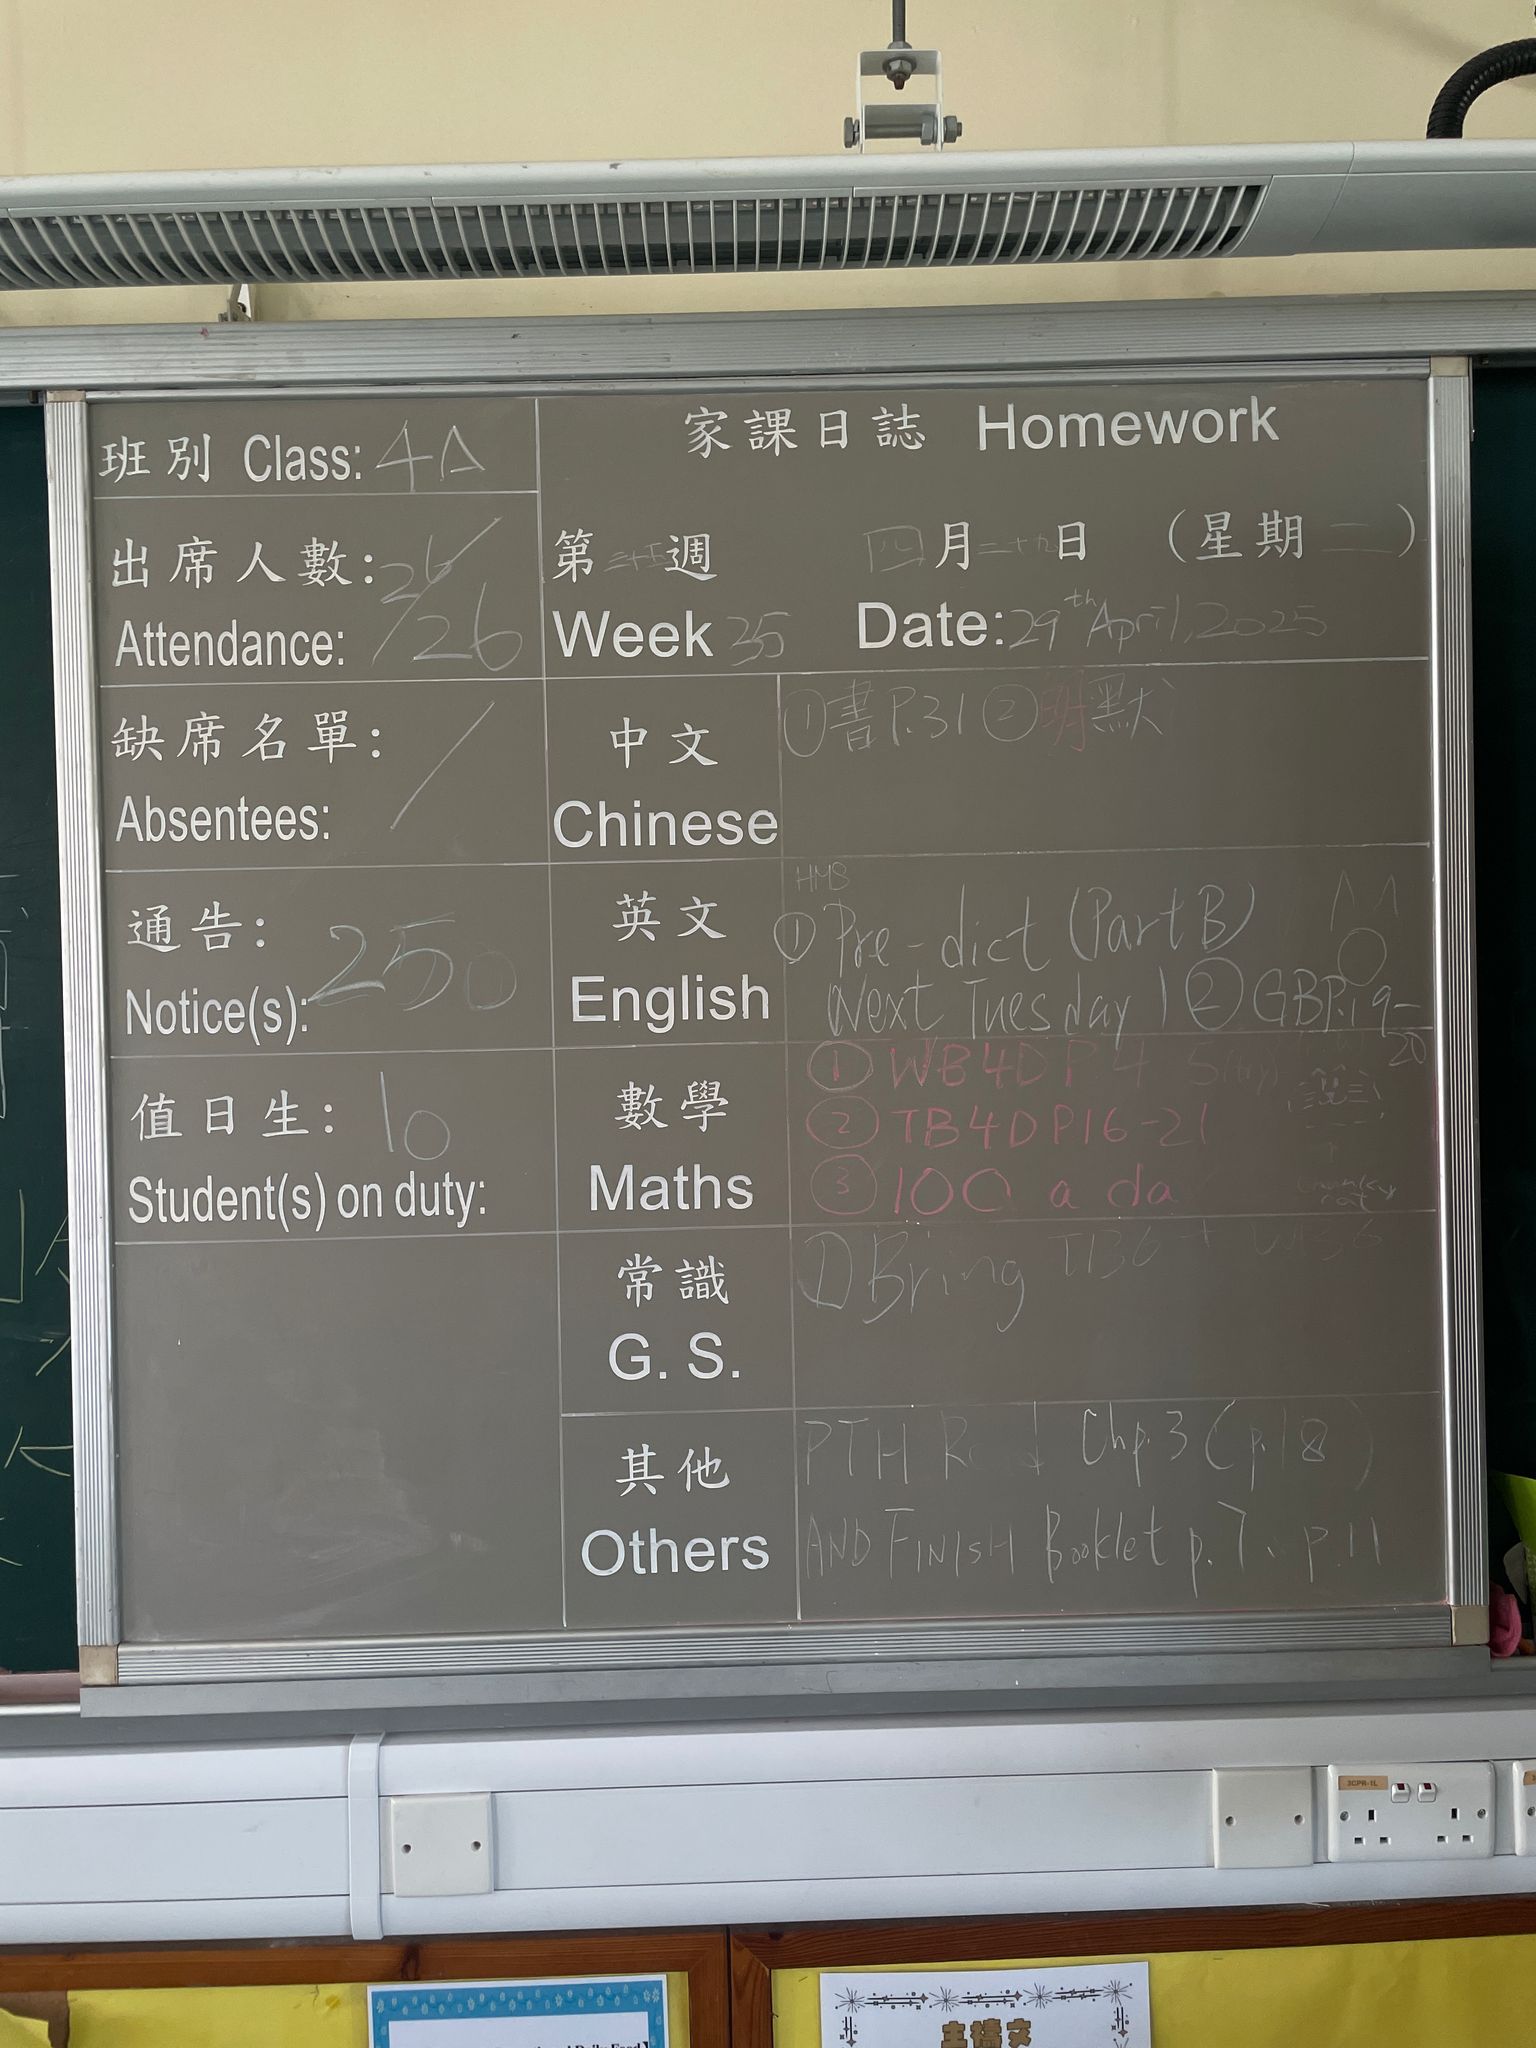 家課日誌 Homework
班別 Class: 4A
出席人數: 26
Attendance: / 26
第三十五週 四月二十九日 (星期二)
Week 35 Date: 29th April, 2025
缺席名單: /
Absentees:
中文
Chinese
① 書P.31 ② 明默
通告: 250
Notice(s):
英文
English
① Pre-dict (Part B)
Next Tuesday ② GB P.19-
20
值日生: 10
Student(s) on duty:
數學
Maths
① WB 4D P.4 5
② TB 4D P16-21
③ 100 a da
常識
G. S.
① Bring TB6 + WB6
其他
Others
PTH Read Chp.3 (p.18)
AND FINISH Booklet p.7、p.11
3CPR-1L
主禱文